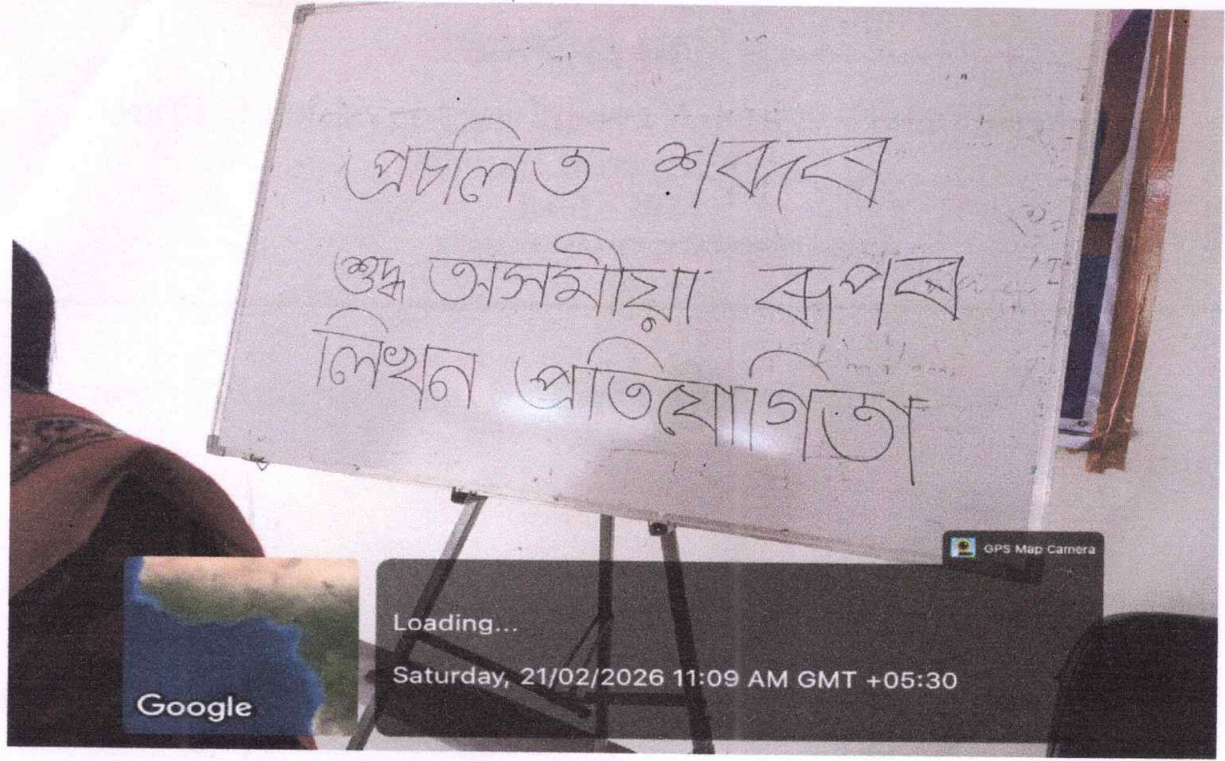 প্ৰচলিত শব্দৰ
শুদ্ধ অসমীয়া ৰূপৰ
লিখন প্ৰতিযোগিতা
GPS Map Camera
Loading...
Saturday, 21/02/2026 11:09 AM GMT +05:30
Google